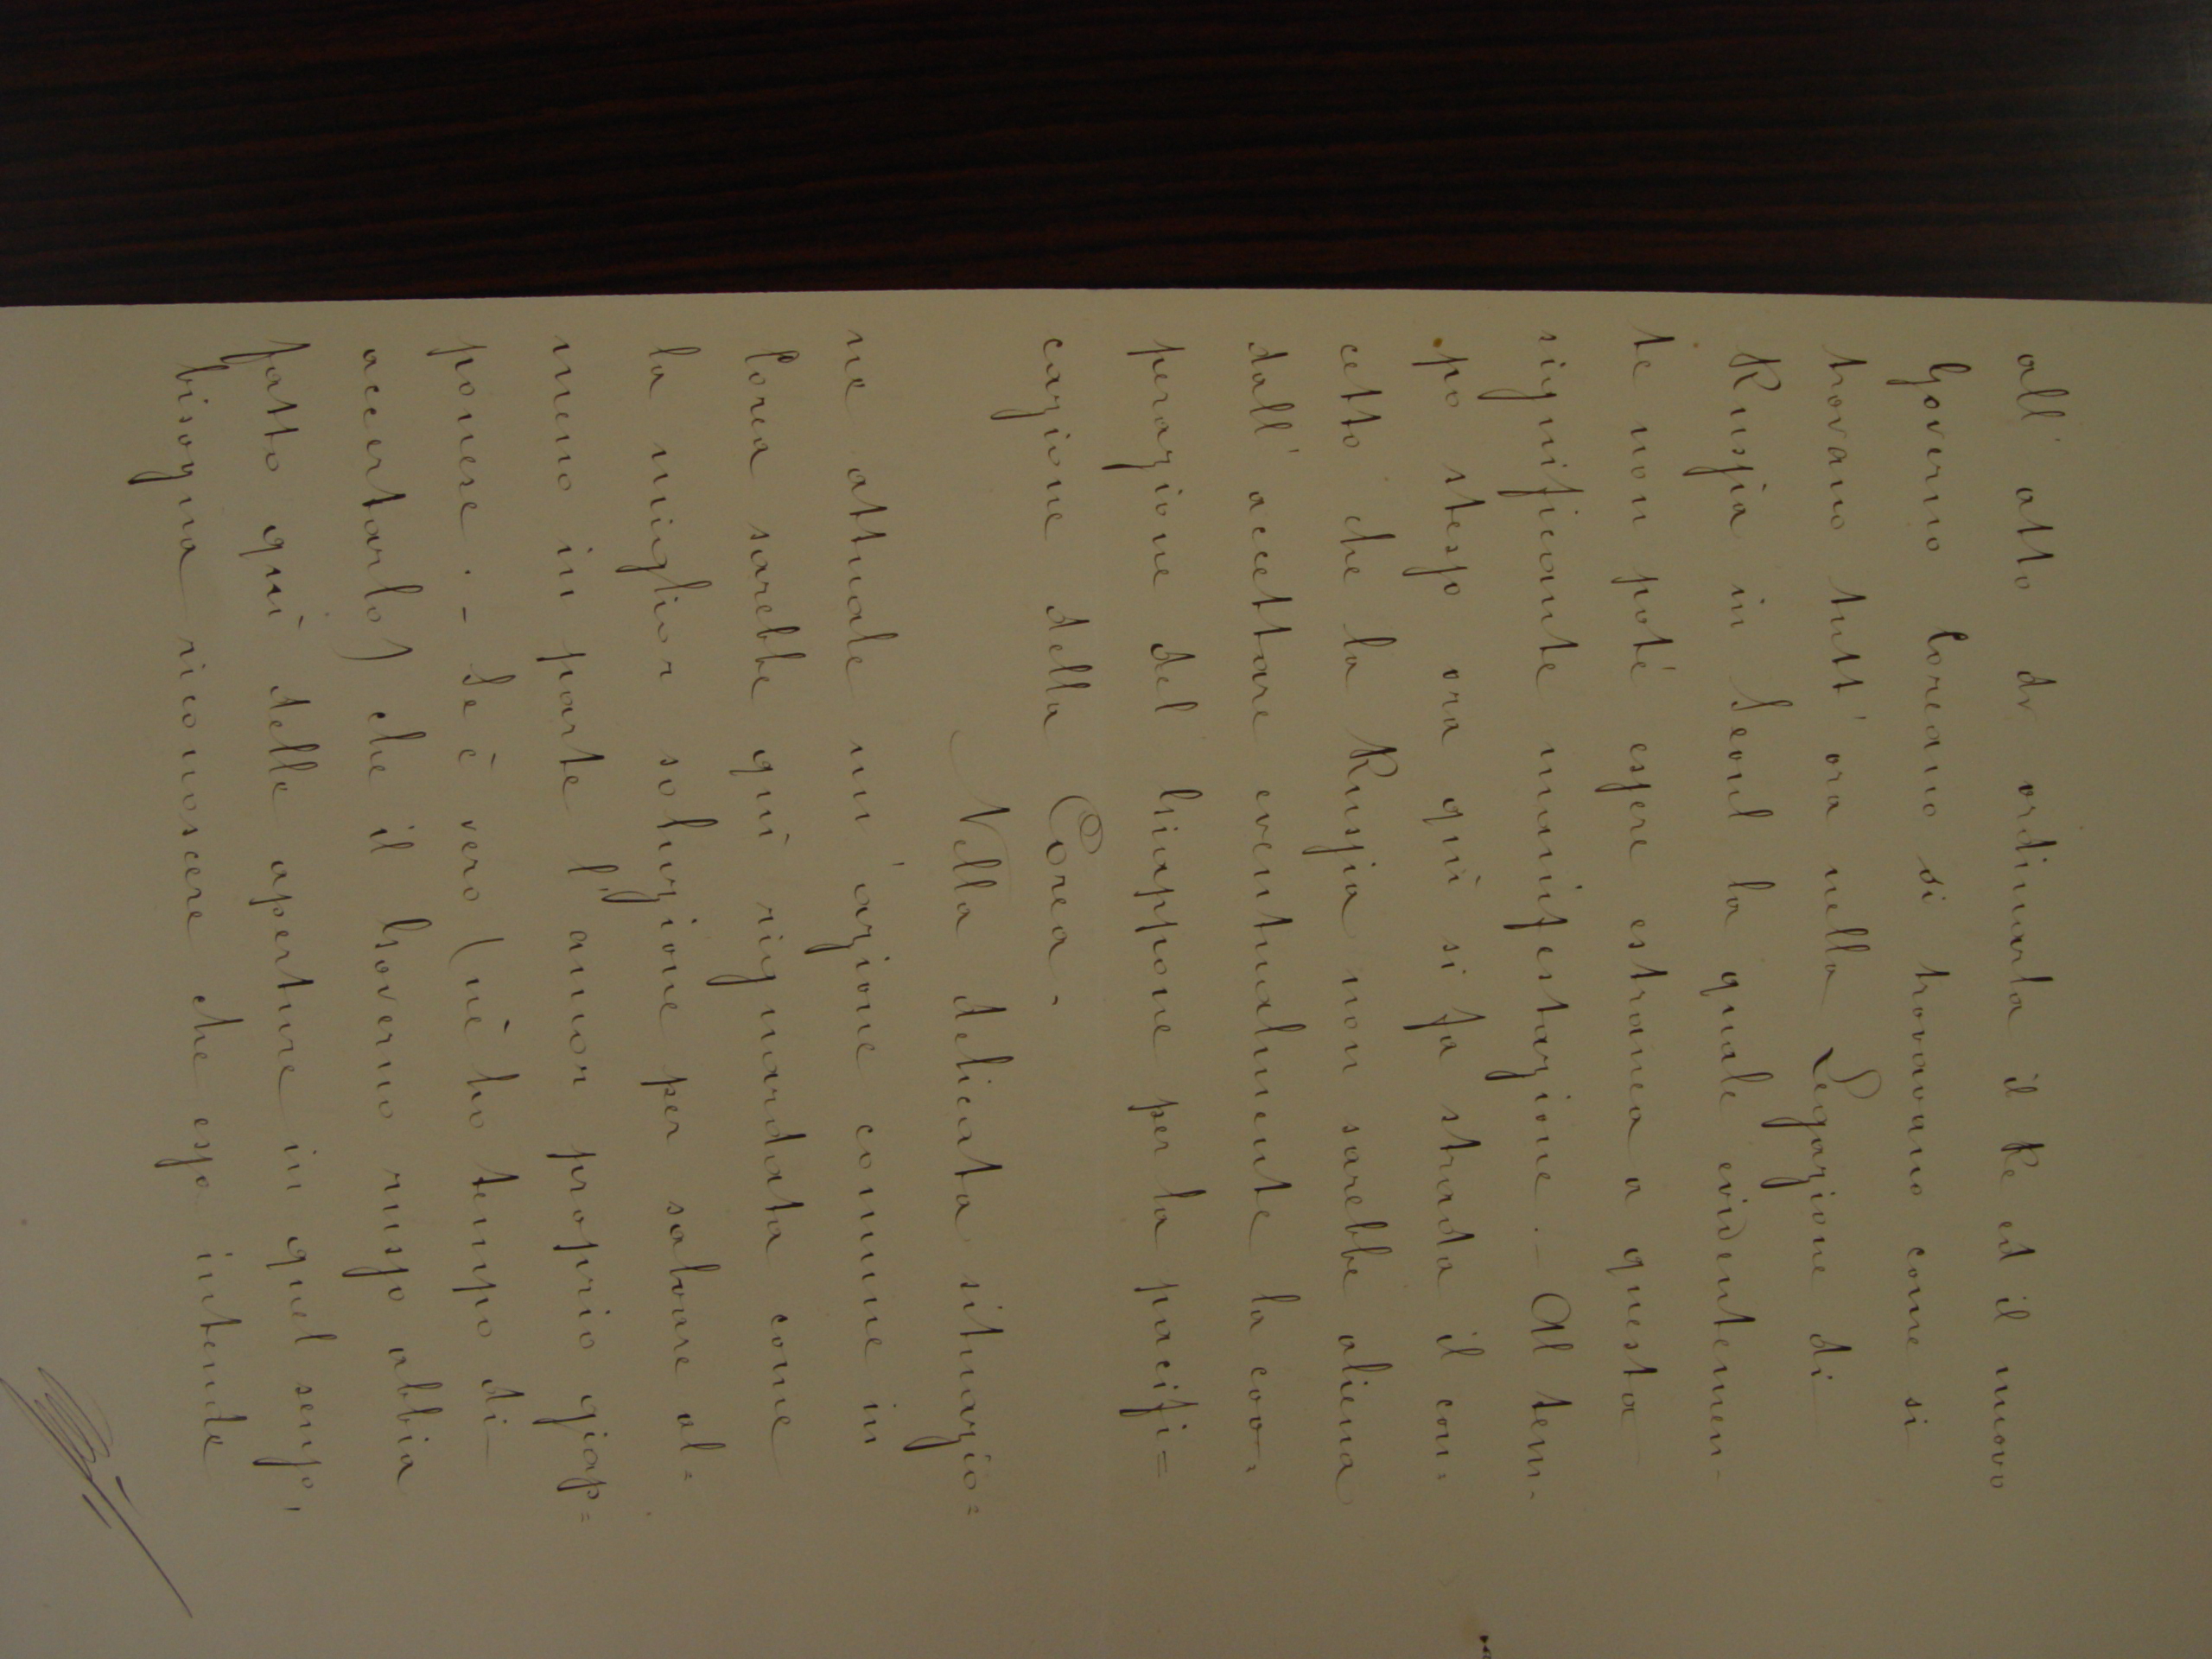 all' atto di ordinarla il Re ed il nuovo
Governo Coreano si trovavano come si
trovano tutt' ora nella Legazione di
Russia in Seoul la quale evidentemen-
te non poté essere estranea a questa
significante manifestazione. - Al tem-
po stesso ora quì si fa strada il con=
cetto che la Russia non sarebbe aliena
dall' accettare eventualmente la coo=
perazione del Giappone per la pacifi=
cazione della Corea.
Nella delicata situazio=
ne attuale un' azione comune in
Corea sarebbe quì riguardata come
la miglior soluzione per salvare al=
meno in parte l' amor proprio giap=
ponese. - Se è vero (nè ho tempo di
accertarlo) che il Governo russo abbia
fatto quì delle aperture in quel senso,
bisogna riconoscere che esso intende